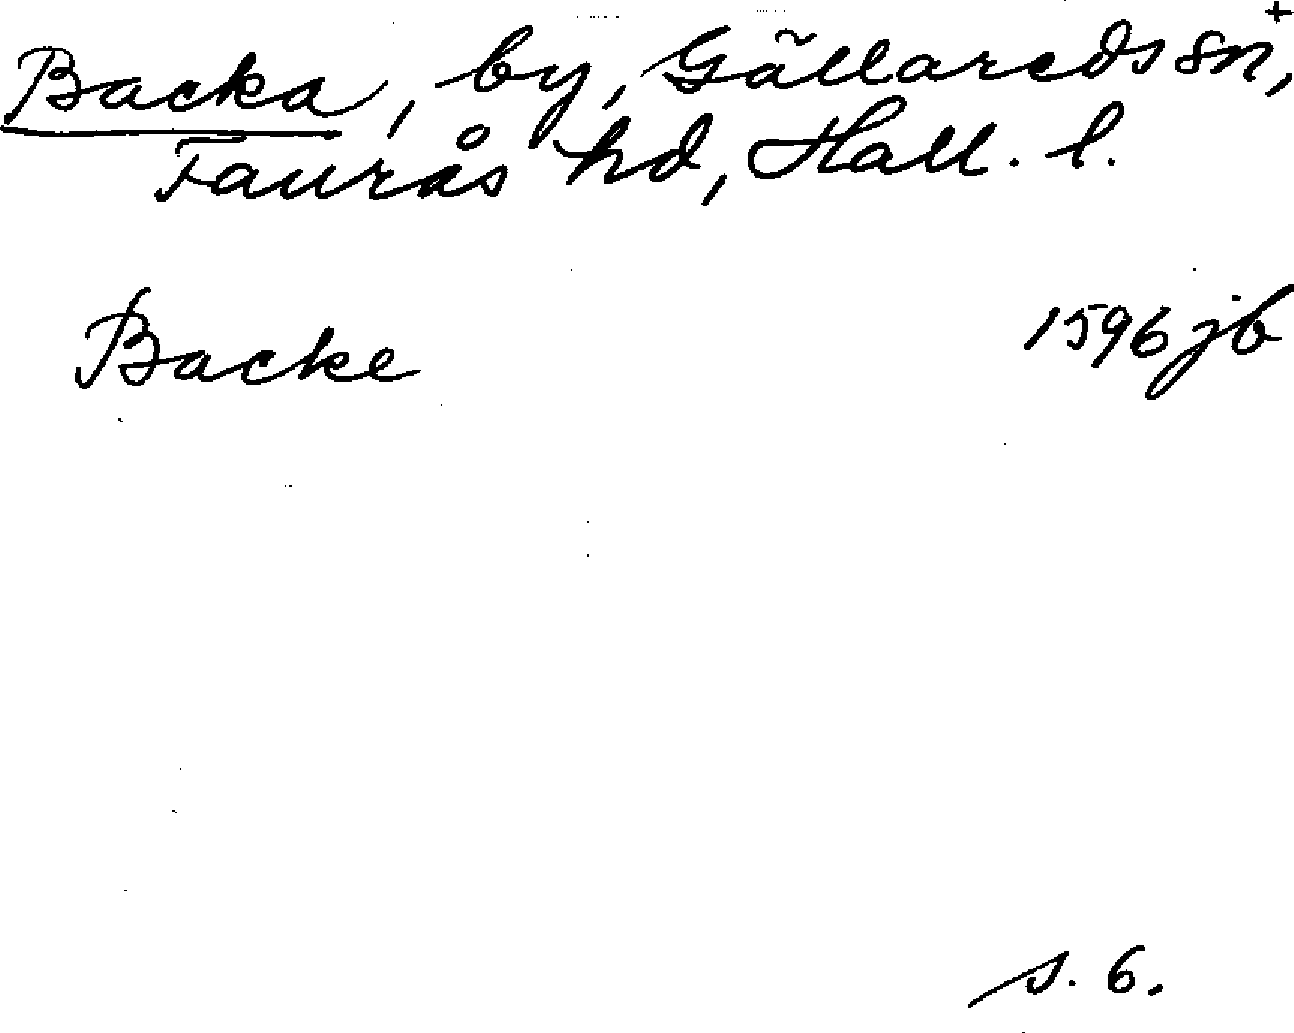 Backa, by, Gällareds sn,+
Faurås hd, Hall. l.
Backe 1596 jb
s. 6.